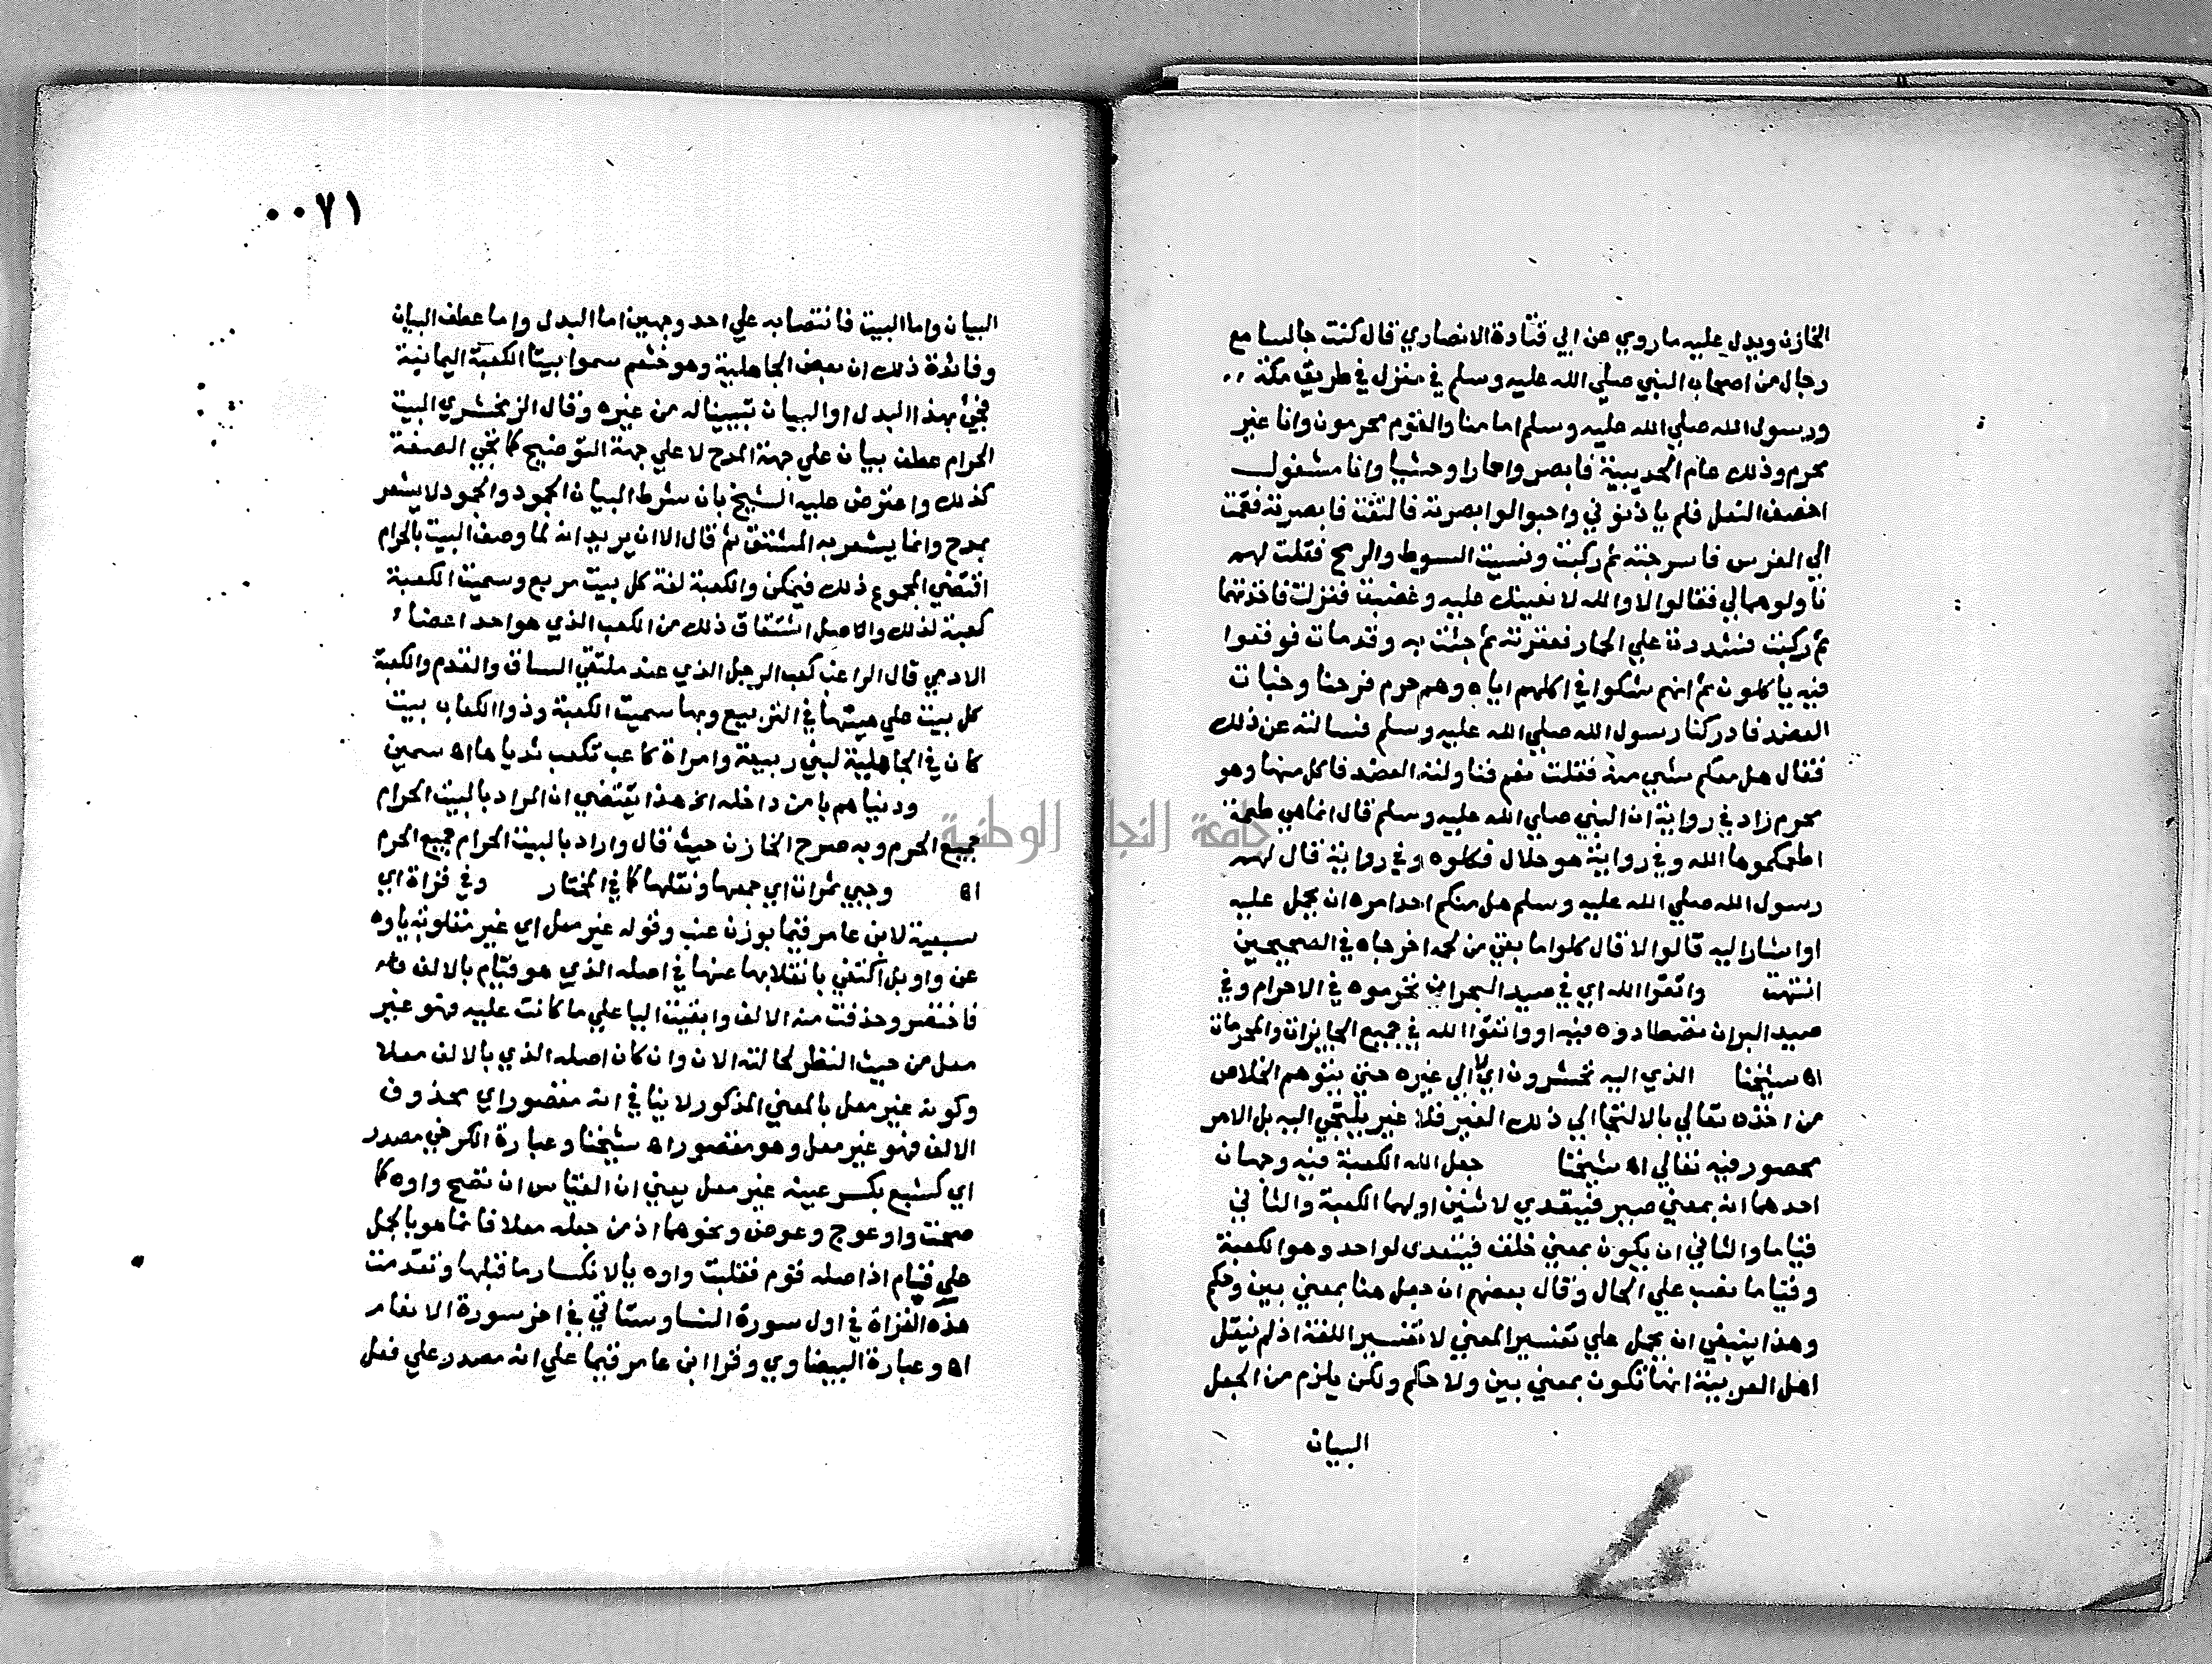 الخازن ويدل عليه ماروي عن ابي قتادة الانصاري قال كنت جالسا مع
رجال من اصحاب النبي صلي الله عليه وسلم في منزل في طريق مكة
ورسول الله صلي الله عليه وسلم امامنا والقوم محرمون وانا غير
محرم وذلك عام الحديبية فابصروا حمارا وحشيا وانا مشغول
اخصف النعل فلم ياذنوني واحبوا لو ابصرته فالتفت فابصرته فقمت
الي الفرس فاسرجته ثم ركبت ونسيت السوط والرمح فقلت لهم
ناولوهمالي فقالوا لا والله لا نعينك عليه وغضبت فنزلت فاخذتهما
ثم ركبت فشددت علي الحمار فعقرته ثم جئت به وقد مات فوقعوا
فيه ياكلون ثم انهم شكوا في اكلهم اياه وهم حرم فرحنا وخبات
العضد فادركنا رسول الله صلي الله عليه وسلم فسالته عن ذلك
فقال هل معكم شي منه فقلت نعم فناولته العضد فاكل منها وهو
محرم زاد في رواية ان النبي صلي الله عليه وسلم قال انما هي طعمة
اطعمكموها الله وفي رواية هو حلال فكلوه وفي رواية قال لهم
رسول الله صلي الله عليه وسلم هل منكم احد امره ان يحمل عليه
او اشار اليه قالوا لا قال كلوا ما بقي من لحمه اخرجاه في الصحيحين
انتهت واتقوا الله اي في صيد البحر ان تحرموه في الاحرام وفي
صيد البر ان تصطادوه فيه او واتقوا الله في جميع الجايزات والمحرمات
اه شيخنا الذي اليه تحشرون اي لا الي غيره حتي يتوهم الخلاص
من اخذه تعالي بالالتجا الي ذلك الغير فلا غير يلتجي اليه بل الامر
محصور فيه تعالي اه شيخنا جعل الله الكعبة فيه وجهان
احدهما انه بمعني صير فيتعدي لاثنين اولهما الكعبة والثاني
قياما والثاني ان يكون بمعني خلق فيتعدى لواحد وهو الكعبة
وقياما نصب علي الحال وقال بعضهم ان جعل هنا بمعني بين وحكم
وهذا ينبغي ان يحمل علي تفسير المعني لا تفسير اللغة اذ لم ينقل
اهل العربية انها تكون بمعني بين ولا حكم ولكن يلزم من الجعل
البيان
٠٠٧١
البيان واما البيت فانتصابه علي احد وجهين اما البدل واما عطف البيان
وفائدة ذلك ان بعض الجاهلية وهو خثعم سموا بيتا الكعبة اليمانية
فجي بهذا البدل او البيان تبيينا له من غيره وقال الزمخشري البيت
الحرام عطف بيان علي جهة المدح لا علي جهة التوضيح كما تجي الصفة
كذلك واعترض عليه الشيخ بان شرط البيان الجمود والجمود لا يشعر
بمدح وانما يشعر به المشتق ثم قال الا ان يريد انه لما وصف البيت بالحرام
اقتضي المجموع ذلك فيمكن والكعبة لغة كل بيت مربع وسميت الكعبة
كعبة لذلك والاصل اشتقاق ذلك من الكعب الذي هو احد اعضاء
الادمي قال الراغب كعب الرجل الذي عند ملتقي الساق والقدم والكعبة
كل بيت علي هيئتها في التربيع وبها سميت الكعبة وذوا الكعاب بيت
كان في الجاهلية لبني ربيعة وامراة كاعب تكعب ثدياها اه سمين
ودنياهم بامن داخله الخ هذا يقتضي ان المراد بالبيت الحرام
جميع الحرم وبه صرح الخازن حيث قال واراد بالبيت الحرام جميع الحرم
اه وجبي ثمرات اي جمعها ونقلها كما في المختار وفي قراة اي
سبعية لابن عامر قيما بوزن عنب وقوله غير معل اي غير مقلوبة ياوه
عن واو بل اكتفي بانقلابها عنها في اصله الذي هو قيام بالالف
فاختصر وحذفت منه الالف وابقيت اليا علي ما كانت عليه فهو غير
معل من حيث النظر لحالته الان وان كان اصله الذي بالالف معلا
وكونه غير معل بالمعني المذكور لا ينافي انه مقصور اي محذوف
الالف فهو غير معل وهو مقصور اه شيخنا وعبارة الكرخي مصدر
اي كشبع بكسر عينه غير معل يعني ان القياس ان تصح واوه كما
صحت واو عوج وعوض ونحوهما اذ من جعله معلا فانما هو بالحمل
علي قيام اذ اصله قوم فقلبت واوه يالانكسار ما قبلها وتقدمت
هذه القراة في اول سورة النسا وستاتي في اخر سورة الانعام
اه وعبارة البيضاوي وقرا ابن عامر قيما علي انه مصدر علي فعل
جامعة النجاح الوطنية